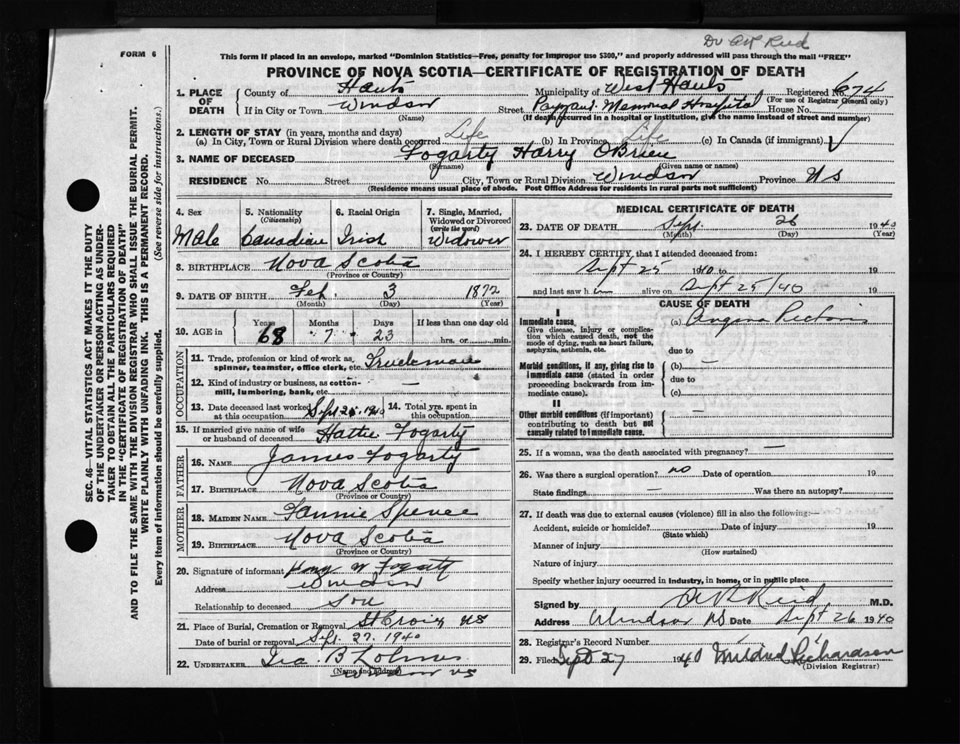 Dr A R Reid
FORM 6
This form if placed in an envelope, marked "Dominion Statistics—Free, penalty for improper use $300," and properly addressed will pass through the mail "FREE"
PROVINCE OF NOVA SCOTIA—CERTIFICATE OF REGISTRATION OF DEATH
1. PLACE OF DEATH
County of Hants Municipality of West Hants Registered No. 674
(For use of Registrar General only)
If in City or Town Windsor Street Payzant Memorial Hospital House No.
(Name) (If death occurred in a hospital or institution, give the name instead of street and number)
2. LENGTH OF STAY (in years, months and days)
(a) In City, Town or Rural Division where death occurred Life (b) In Province Life (c) In Canada (if immigrant)
3. NAME OF DECEASED Fogarty Harry OBrien
(Surname) (Given name or names)
RESIDENCE No. Street City, Town or Rural Division Windsor Province NS
(Residence means usual place of abode. Post Office Address for residents in rural parts not sufficient)
4. Sex Male
5. Nationality (Citizenship) Canadian
6. Racial Origin Irish
7. Single, Married, Widowed or Divorced (write the word) Widower
8. BIRTHPLACE Nova Scotia
(Province or Country)
9. DATE OF BIRTH Feb. 3 1872
(Month) (Day) (Year)
10. AGE in Years 68 Months 7 Days 23 If less than one day old
hrs. or min.
OCCUPATION
11. Trade, profession or kind of work as, spinner, teamster, office clerk, etc. Truckman
12. Kind of industry or business, as cotton-mill, lumbering, bank, etc. —
13. Date deceased last worked at this occupation Sept 25 1940
14. Total yrs. spent in this occupation
15. If married give name of wife or husband of deceased Hattie Fogarty
FATHER
16. NAME James Fogarty
17. BIRTHPLACE Nova Scotia
(Province or Country)
MOTHER
18. MAIDEN NAME Fannie Spence
19. BIRTHPLACE Nova Scotia
(Province or Country)
20. Signature of informant Harry W Fogarty
Address Windsor
Relationship to deceased Son
21. Place of Burial, Cremation or Removal St Croix NS
Date of burial or removal Sept. 27. 1940
22. UNDERTAKER Ira. B
(Name and Address) Windsor NS
MEDICAL CERTIFICATE OF DEATH
23. DATE OF DEATH Sept. 26 1940
(Month) (Day) (Year)
24. I HEREBY CERTIFY, that I attended deceased from:
Sept 25 1940 to 19
and last saw him alive on Sept 25/40 19
CAUSE OF DEATH
I
Immediate cause. (a) Angina Pectoris
Give disease, injury or complication which caused death, not the mode of dying, such as heart failure, asphyxia, asthenia, etc.
due to
Morbid conditions, if any, giving rise to immediate cause (stated in order proceeding backwards from immediate cause).
(b) —
due to
(c)
II
Other morbid conditions (if important) contributing to death but not causally related to immediate cause. —
25. If a woman, was the death associated with pregnancy? —
26. Was there a surgical operation? no Date of operation 19
State findings — Was there an autopsy?
27. If death was due to external causes (violence) fill in also the following:—
Accident, suicide or homicide? Date of injury 19
(State which)
Manner of injury
(How sustained)
Nature of injury
Specify whether injury occurred in industry, in home, or in public place
Signed by A R Reid M.D.
Address Windsor NS Date Sept 26 1940
28. Registrar's Record Number
29. Filed Sept 27 1940 Mildred Richardson
(Division Registrar)
SEC. 46—VITAL STATISTICS ACT MAKES IT THE DUTY
OF THE UNDERTAKER OR PERSON ACTING AS UNDER-
TAKER TO OBTAIN ALL THE PARTICULARS REQUIRED
IN THE "CERTIFICATE OF REGISTRATION OF DEATH"
AND TO FILE THE SAME WITH THE DIVISION REGISTRAR WHO SHALL ISSUE THE BURIAL PERMIT.
WRITE PLAINLY WITH UNFADING INK. THIS IS A PERMANENT RECORD.
Every item of information should be carefully supplied. (See reverse side for instructions.)